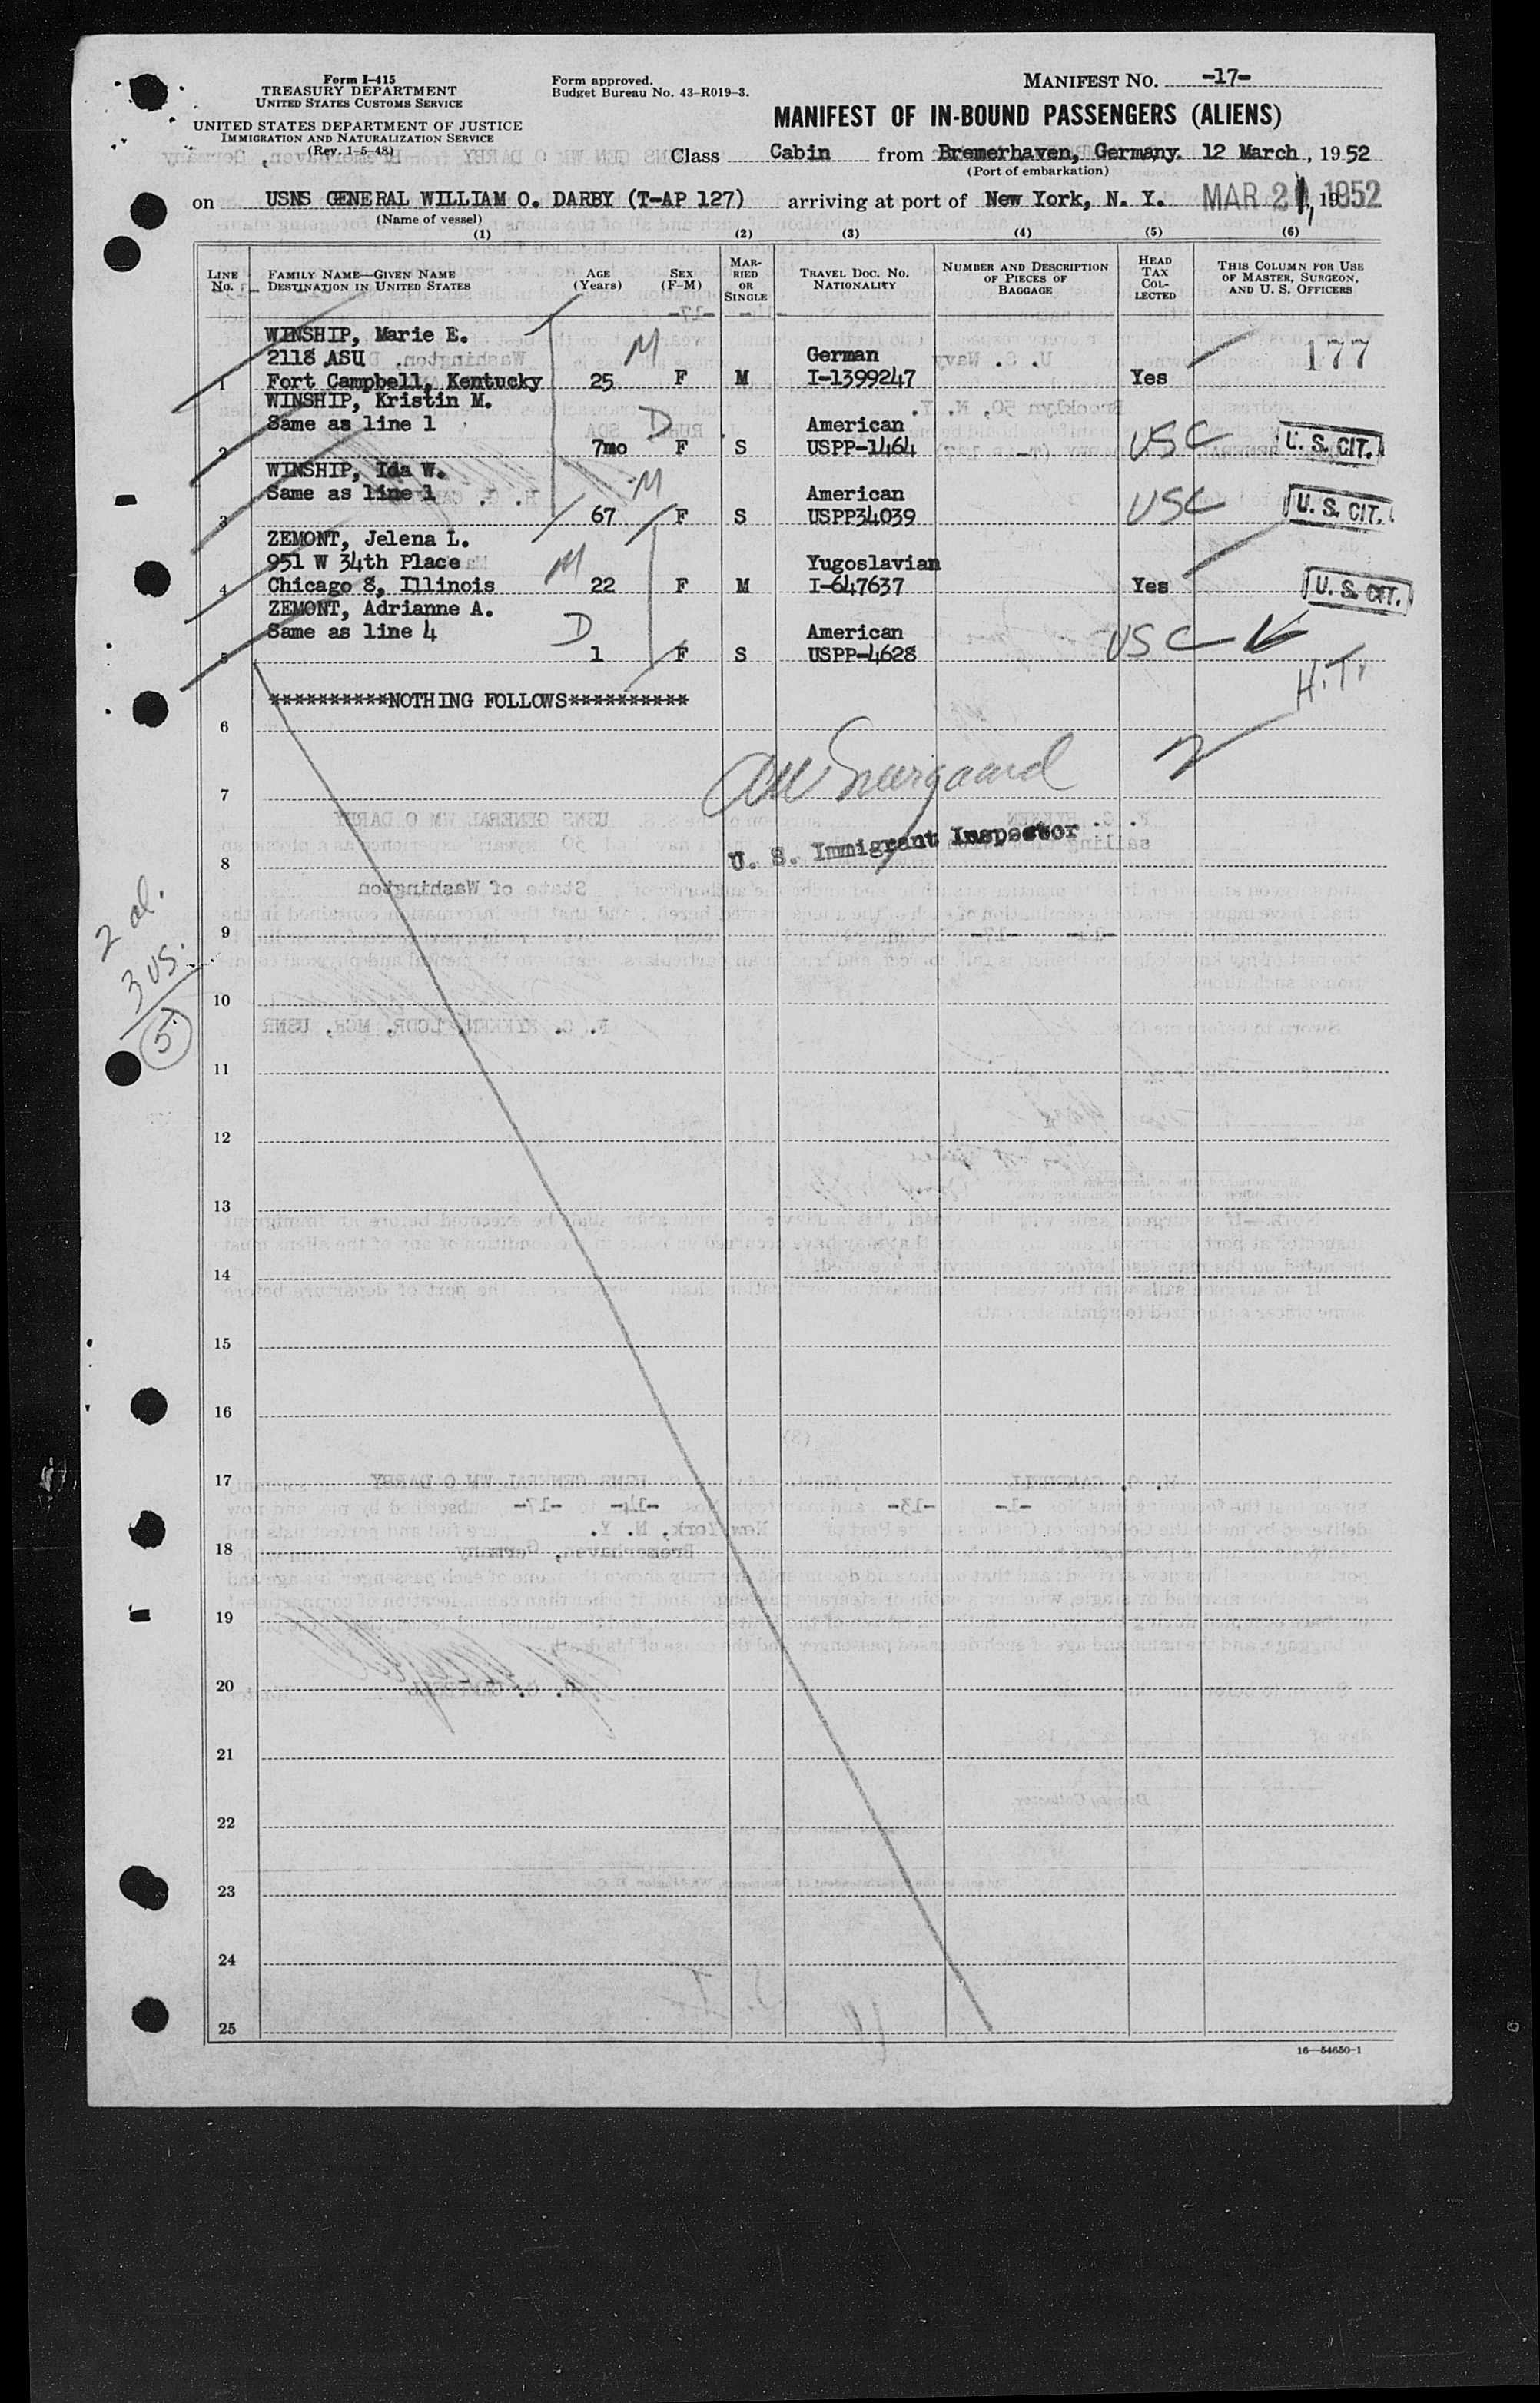 Form I-415
TREASURY DEPARTMENT
UNITED STATES CUSTOMS SERVICE
UNITED STATES DEPARTMENT OF JUSTICE
IMMIGRATION AND NATURALIZATION SERVICE
(Rev. 1-5-48)
Form approved.
Budget Bureau No. 43-R019-3.
MANIFEST NO. -17-
MANIFEST OF IN-BOUND PASSENGERS (ALIENS)
Class Cabin from Bremerhaven, Germany. 12 March, 1952
(Port of embarkation)
on USNS GENERAL WILLIAM O. DARBY (T-AP 127) arriving at port of New York, N. Y. MAR 21, 1952
(Name of vessel)
(1) (2) (3) (4) (5) (6)
LINE No. FAMILY NAME—GIVEN NAME DESTINATION IN UNITED STATES AGE (Years) SEX (F-M) MARRIED OR SINGLE TRAVEL DOC. NO. NATIONALITY NUMBER AND DESCRIPTION OF PIECES OF BAGGAGE HEAD TAX COLLECTED THIS COLUMN FOR USE OF MASTER, SURGEON, AND U. S. OFFICERS
WINSHIP, Marie E. M
2118 ASU German 177
1 Fort Campbell, Kentucky 25 F M I-1399247 Yes
WINSHIP, Kristin M.
Same as line 1 D American
2 7mo F S USPP-1464 USC U. S. CIT.
WINSHIP, Ida W. M
Same as line 1 American
3 67 F S USPP34039 USC U. S. CIT.
ZEMONT, Jelena L.
951 W 34th Place M Yugoslavian
4 Chicago 8, Illinois 22 F M I-647637 Yes U. S. CIT.
ZEMONT, Adrianne A.
Same as line 4 D American
5 1 F S USPP-4628 USC
H.T.
**********NOTHING FOLLOWS**********
6
2
7
U. S. Immigrant Inspector
8
2 al.
9
3 US.
10
(5)
11
12
13
14
15
16
17
18
19
20
21
22
23
24
25
16—54650-1